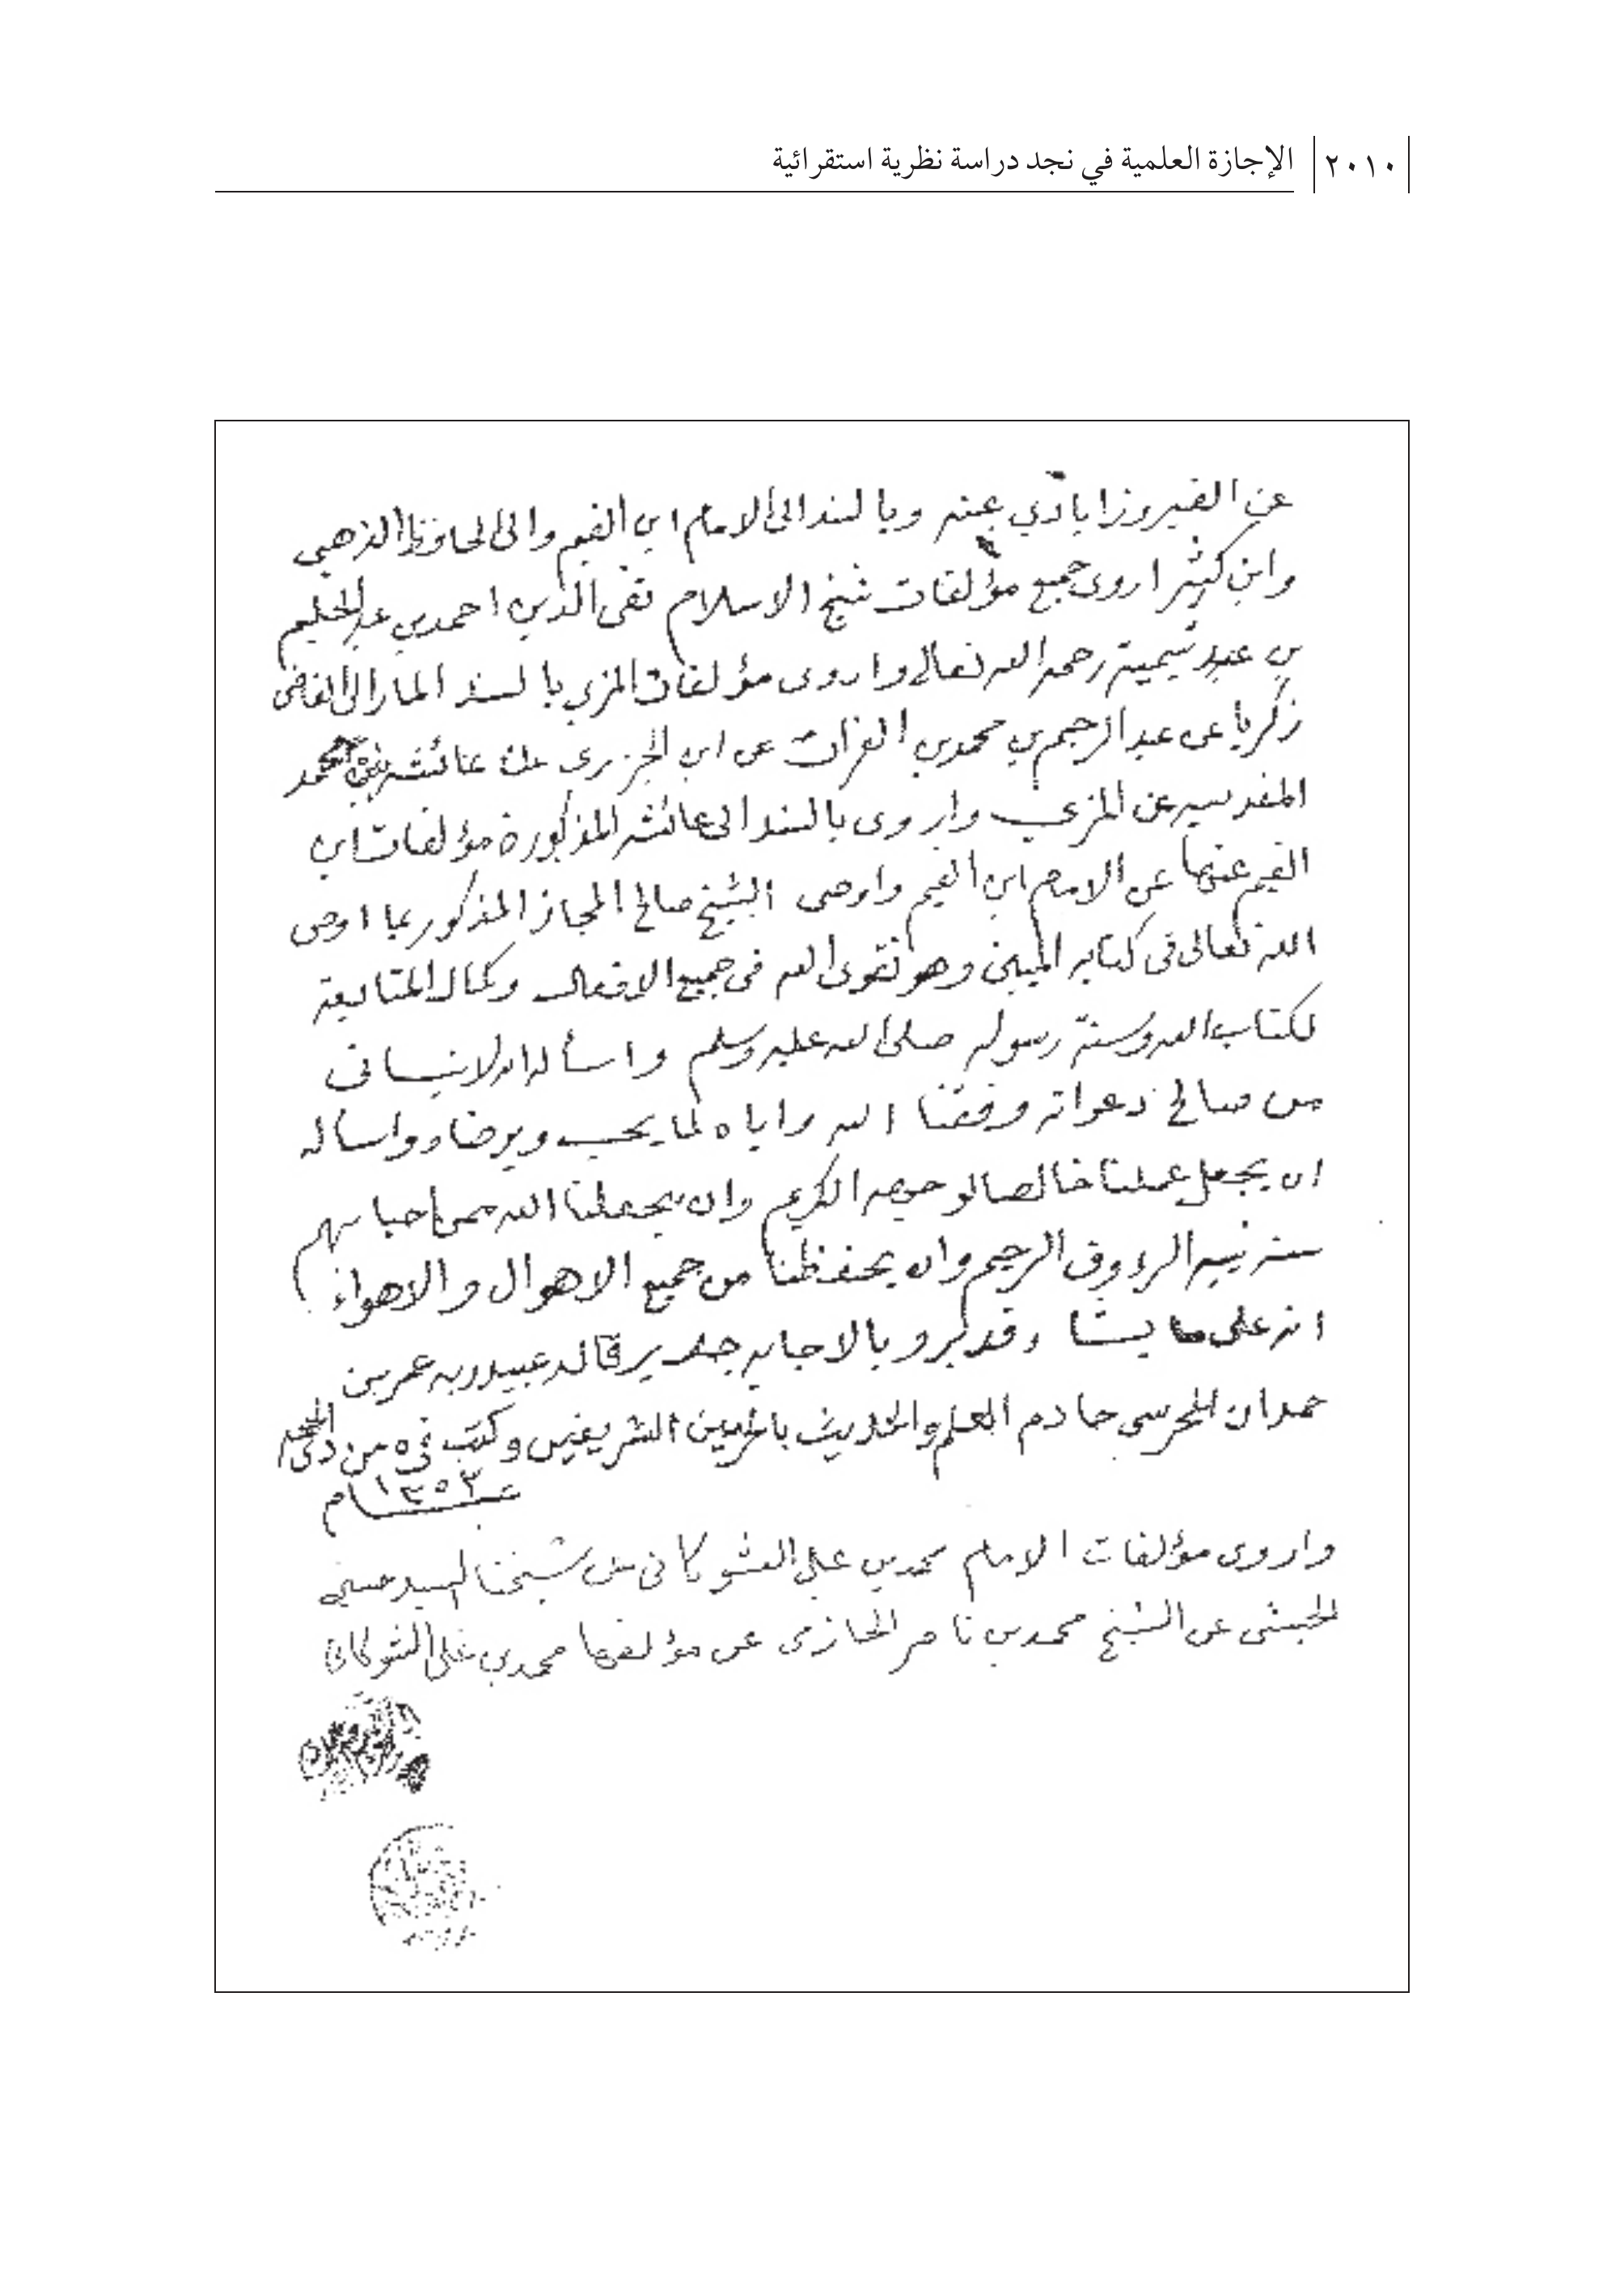 ٢٠١٠ الإجازة العلمية في نجد دراسة نظرية استقرائية
عن الفيروزابادي عنه وبالسند الى الامام ابن القيم والى الحافظ الذهبي
وابن كثير اروى جميع مؤلفات شيخ الاسلام تقى الدين احمد بن عبد الحليم
بن عبد تيمية رحمه الله تعالى واروى مؤلفات المزي بالسند المار الى القاضى
زكريا عن عبد الرحيم بن محمد بن الفرات عن ابن الجزرى عن عائشة محمد
المقدسيه عن المزي واروى بالسند الى عائشه المذكورة مؤلفات ابن
القيم عنها عن الامام ابن القيم واوصى الشيخ صالح المجاز المذكور بما اوصى
الله تعالى فى كتابه المبين وهو تقوى الله فى جميع الافعال وكمال المتابعة
لكتاب الله وسنة رسوله صلى الله عليه وسلم واسأله ان لا ينسانى
من صالح دعواته وفقنا الله واياه لما يحب ويرضاه واسأله
ان يجعل عملنا خالصا لوجهه الكريم وان يجعلنا الله ممن احيا بهم
سنة نبيه الرءوف الرحيم وان يحفظنا من جميع الاهوال والاهواء
انه على ما يشاء قدير وبالاجابه جدير قاله عبيد ربه عمر بن
حمدان المحرسى خادم العلم والحديث بالحرمين الشريفين وكتب فى ٥ من ذى الحجه
عام ١٣٥٣
واروى مؤلفات الامام محمد بن علي الشوكانى عن شيخنا السيد حسين
الحبشى عن الشيخ محمد بن ناصر الحازمى عن مؤلفها محمد بن على الشوكانى